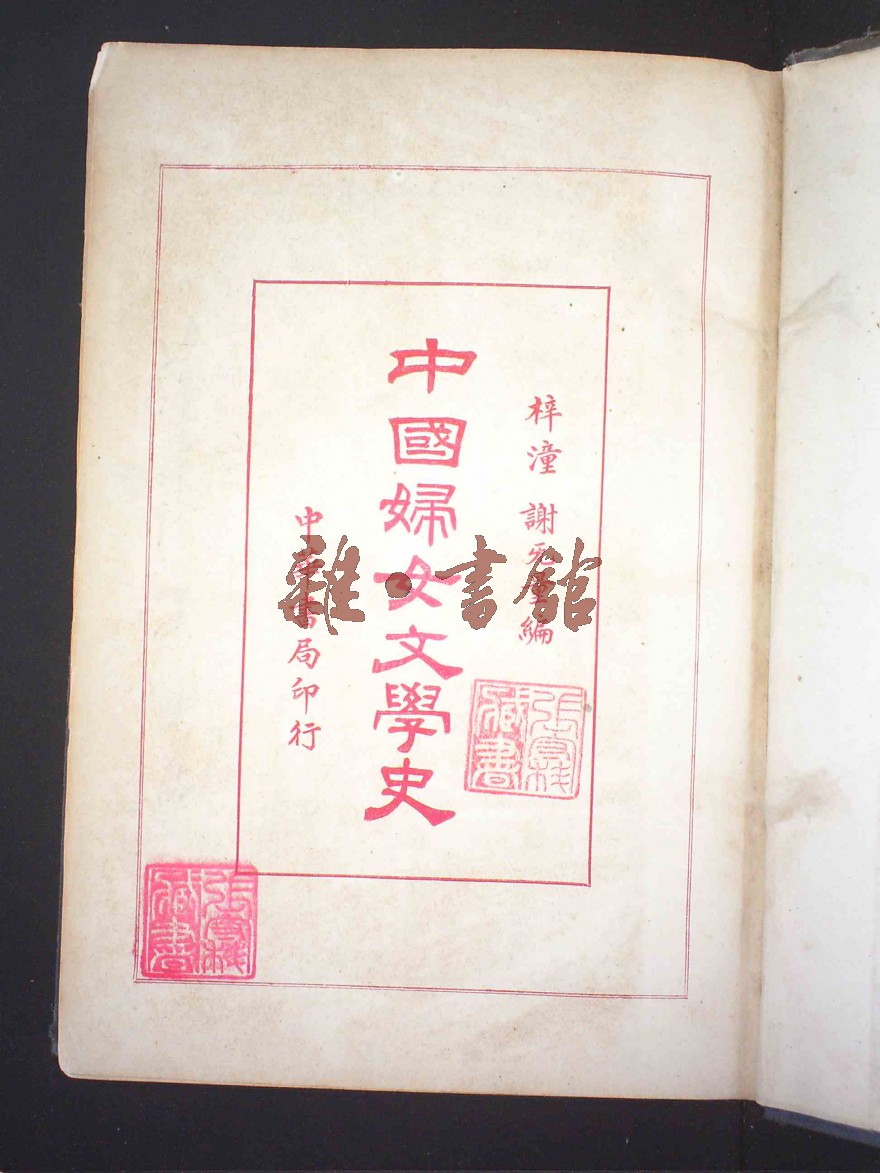 梓潼 謝无量編
中國婦女文學史
中華書局印行
雜·書館
藏書
藏書